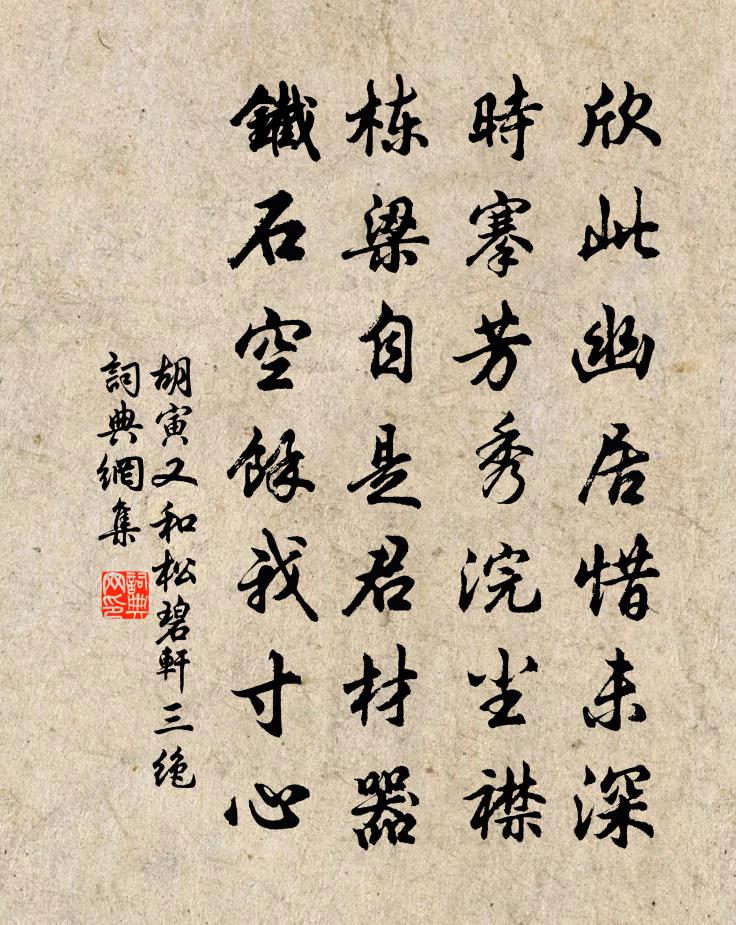 欣此幽居惜未深
時搴芳秀浣尘襟
栋梁自是君材器
鐵石空餘我寸心
胡寅又和松碧軒三绝
詞典網集
詞典网印